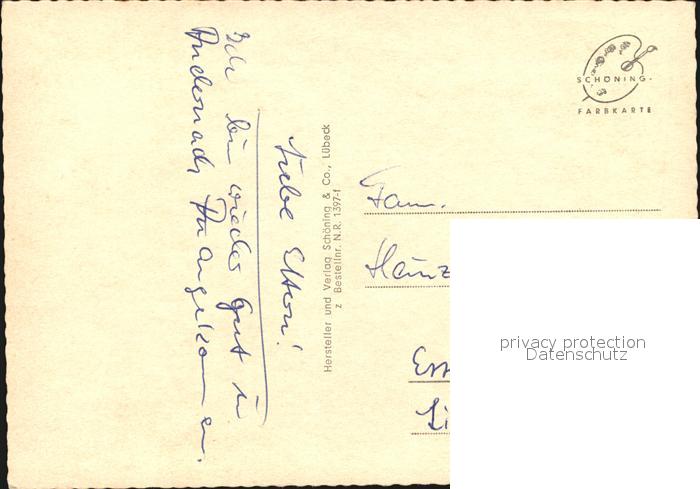 Liebe Eltern!
Ich bin wieder gut in
Andernach angekommen.
Hersteller und Verlag Schöning & Co., Lübeck
z Bestellnr. N.R. 1397-f
SCHÖNING
FARBKARTE
Fam.
Heinz
privacy protection
Datenschutz